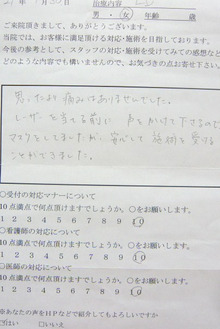 年 7月30日 治療内容
男・女 年齢 歳
ご来院頂きまして、ありがとうございます。
当院では、お客様に満足頂ける対応・施術を目指しております。
今後の参考として、スタッフの対応・施術を受けてみての感想など
どのような内容でも構いませんので、お気づきの点お寄せ下さい。
思ったより痛みはありませんでした。
レーザーを当てる前に 声をかけて下さるので
ドキッとしましたが、安心して 施術を受ける
ことができました。
○受付の対応マナーについて
10点満点で何点頂けますでしょうか。○をお願いします。
1 2 3 4 5 6 7 8 9 10
○看護師の対応について
10点満点で何点頂けますでしょうか。○をお願いします。
1 2 3 4 5 6 7 8 9 10
○医師の対応について
10点満点で何点頂けますでしょうか。○をお願いします。
1 2 3 4 5 6 7 8 9 10
※あなたの声をHPなどで紹介してもよろしいですか
□はい □いいえ